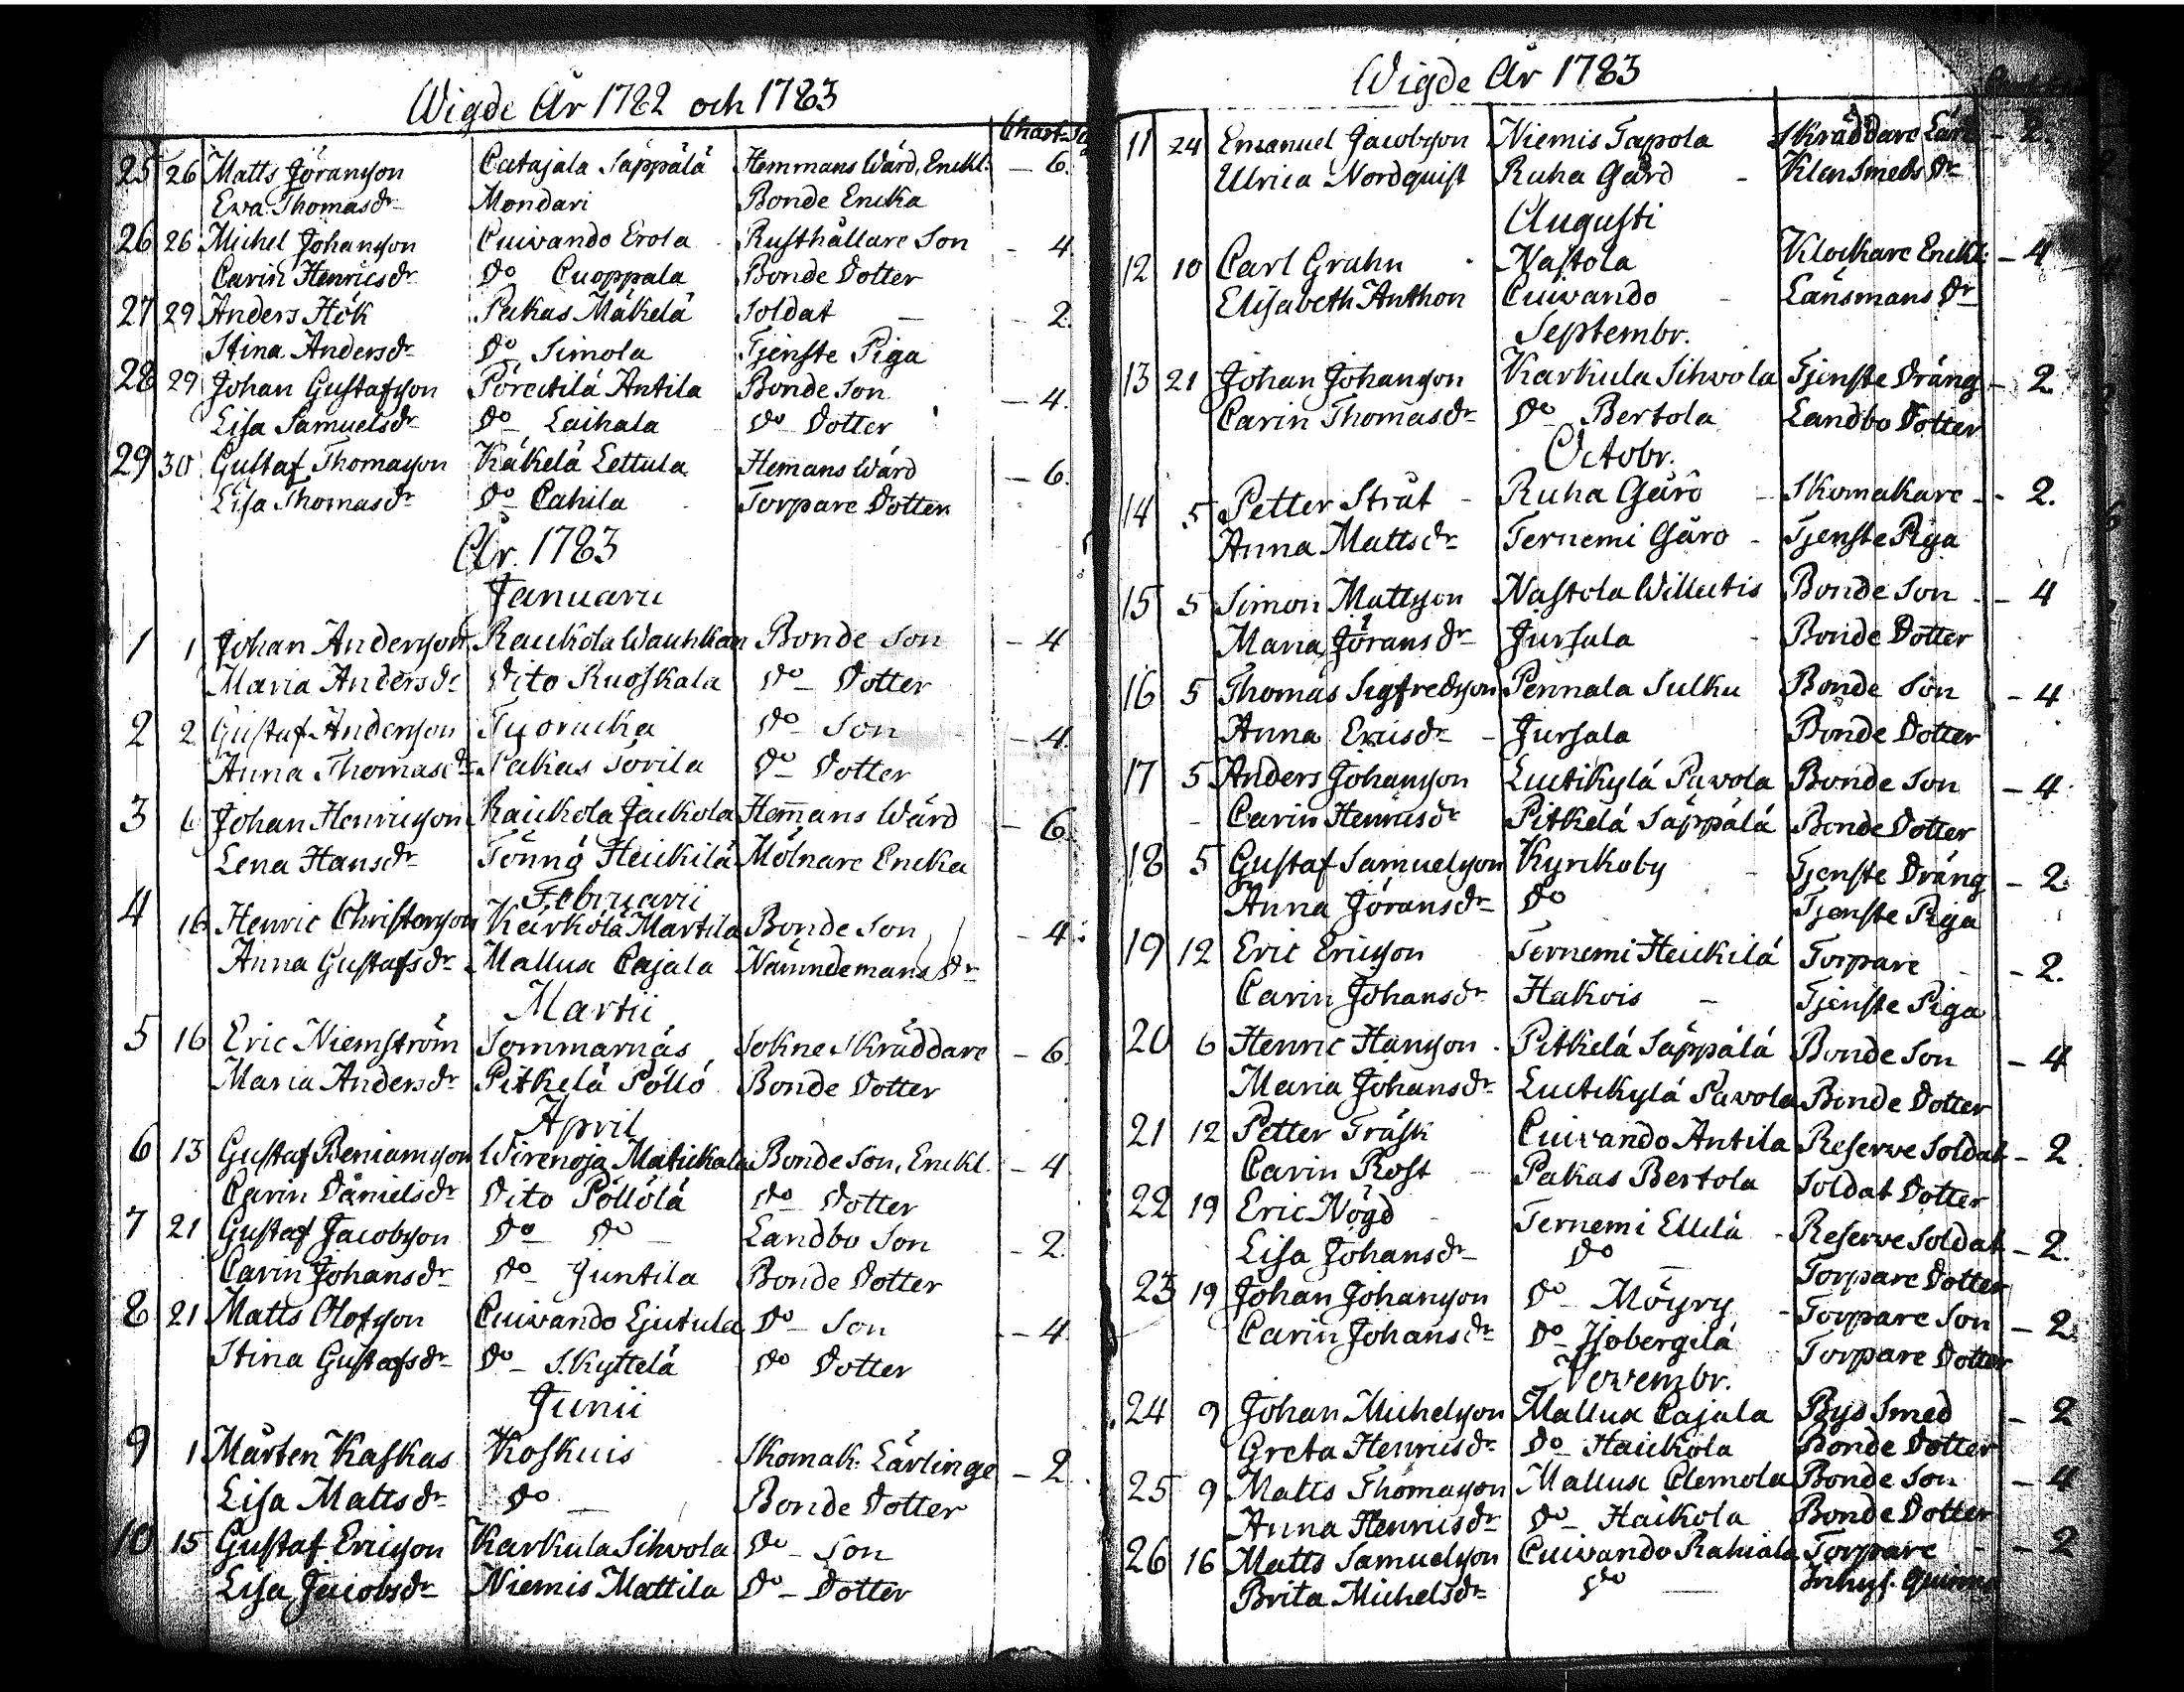 Wigde År 1782 och 1783
25 26 Matts Jöransson Catajala Säppälä Hemmans Wärd, Enckl. - 6.
Ewa Thomasdr Mondari Bonde Encka
26 26 Michel Johansson Cuivando Erola Rusthållare Son - 4.
Carin Henricsdr Do Cuoppala Bonde Dotter
27 29 Anders Hök Pakas Mäkelä Soldat - 2.
Stina Andersdr Do Simola Tjenste Piga
28 29 Johan Gustafsson Antila Bonde Son - 4.
Lisa Samuelsdr Do Laihala Do Dotter
29 30 Gustaf Thomasson Käkelä Lettula Hemans Wärd - 6.
Lisa Thomasdr Do Cahila Torpare Dotter
År. 1783
Januarii
1 1 Johan Andersson Raukola Bonde Son - 4
Maria Andersdr Dito Ruoskala Do Dotter
2 2 Gustaf Andersson Do Son - 4.
Anna Thomasdr Pakas Sorila Do Dotter
3 6 Johan Henricsson Jackola Hemans Wärd - 6.
Lena Hansdr Tönnö Heickilä Mölnare Encka
Februarii
4 16 Henric Christersson Kärkölä Martila Bonde Son - 4.
Anna Gustafsdr Mallux Cajala Nämndemans Dr
Martii
5 16 Eric Niemström Sommarnäs Sokne Skräddare - 6.
Maria Andersdr Pitkelä Pöllö Bonde Dotter
April
6 13 Gustaf Beniamsson Wirenoja Matickala Bonde Son, Enckl. - 4
Carin Danielsdr Dito Pöllölä Do Dotter
7 21 Gustaf Jacobsson Do Do Landbo Son - 2.
Carin Johansdr Do Juntila Bonde Dotter
8 21 Matts Olofsson Cuivando Ljutula Do Son - 4
Stina Gustafsdr Do Skyttelä Do Dotter
Junii
9 1 Mårten Kaskas Koskuis Skomak: Lärlinge - 2.
Lisa Mattsdr Do Bonde Dotter
10 15 Gustaf Ericsson Karkula Sihvola Do Son
Lisa Jacobsdr Niemis Mattila Do Dotter
Wigde År 1783
11 24 Emanuel Jacobsson Niemis Tapola Skräddare Lärl - 2.
Ulrica Nordquist Ruha Gård Klensmeds Dr
Augusti
12 10 Carl Grahn Nastola Klockare Enckl: - 4
Elisabeth Anthon Cuivando Länsmans Dr
Septembr.
13 21 Johan Johansson Karkula Sihvola Tjenste Dräng - 2
Carin Thomasdr Do Bertola Landbo Dotter
Octobr.
14 5 Petter Stråt Ruha Gård Skomakare - 2.
Anna Mattsdr Ternemi Gård Tjenste Piga
15 5 Simon Mattsson Nastola Bonde Son - 4
Maria Jöransdr Jursala Bonde Dotter
16 5 Thomas Sigfredsson Pennala Sulku Bonde Son - 4
Anna Ericsdr Jursala Bonde Dotter
17 5 Anders Johansson Luttikylä Pavola Bonde Son - 4
Carin Henricsdr Pitkelä Säppälä Bonde Dotter
18 5 Gustaf Samuelsson Kyrckoby Tjenste Dräng - 2
Anna Jöransdr Do Tjenste Piga
19 12 Eric Ericsson Ternemi Heickilä Torpare - 2.
Carin Johansdr Hakois Tjenste Piga
20 6 Henric Hansson Pitkelä Säppälä Bonde Son - 4
Maria Johansdr Luttikylä Pavola Bonde Dotter
21 12 Petter Träsk Cuivando Antila Reserve Soldat - 2
Carin Rost Pakas Bertola Soldat Dotter
22 19 Eric Nögd Ternemi Ellilä Reserve Soldat - 2.
Lisa Johansdr Do Torpare Dotter
23 19 Johan Johansson Do Möyry Torpare Son - 2.
Carin Johansdr Do Sjobergilä Torpare Dotter
Novembr.
24 9 Johan Michelsson Mallux Cajala Bys Smed - 2
Greta Henricsdr Do Haickola Bonde Dotter
25 9 Matts Thomasson Mallux Clemola Bonde Son - 4
Anna Henricsdr Do Haikola Bonde Dotter
26 16 Matts Samuelsson Cuivando Rahiala Torpare - 2
Brita Michelsdr Do Inhys.